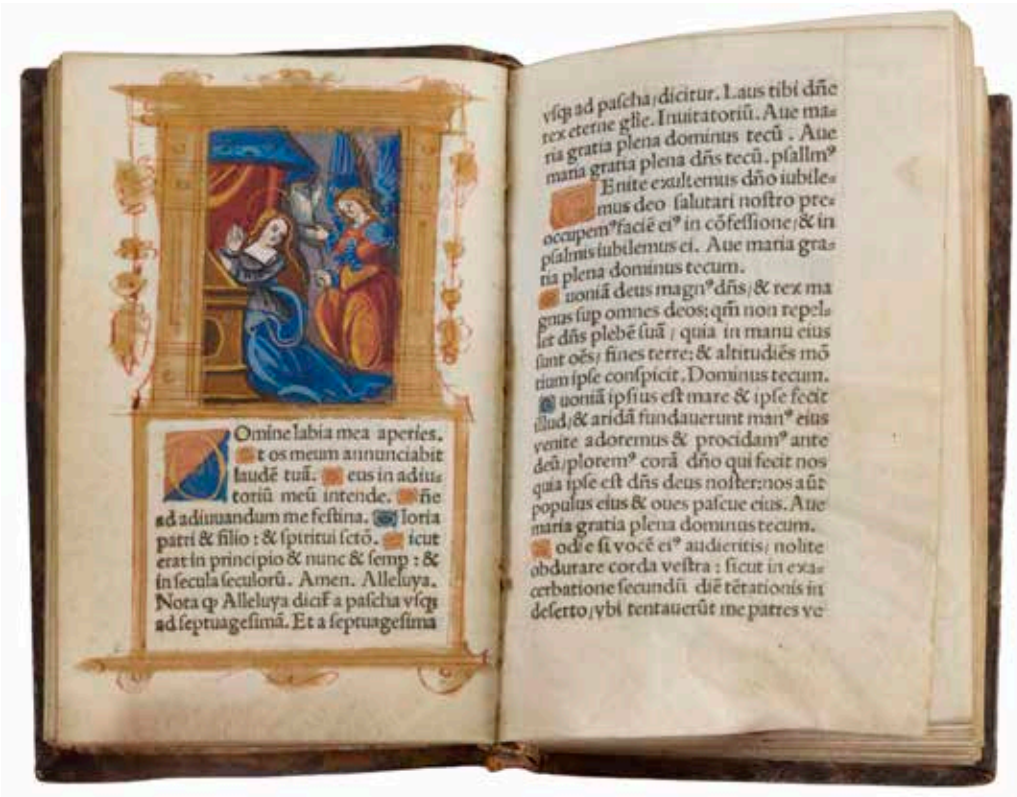 Omine labia mea aperies.
t os meum annunciabit
laudē tuā. eus in adiu=
toriū meū intende. n̄e
ad adiuuandum me festina. loria
patri & filio : & spiritui sctō. icut
erat in principio & nunc & semp : &
in secula seculorū. Amen. Alleluya.
Nota ꝙ Alleluya dicit᷑ a pascha vsqꝫ
ad septuagesimā. Et a septuagesima
vsqꝫ ad pascha/dicitur. Laus tibi dn̄e
rex eterne gl̄ie. Inuitatoriū. Aue ma=
ria gratia plena dominus tecū. Aue
maria gratia plena dn̄s tecū. psallmꝰ
Enite exultemus dn̄o iubile=
mus deo salutari nostro pre=
occupemꝰ faciē eiꝰ in cōfessione/& in
psalmis iubilemus ei. Aue maria gra=
tia plena dominus tecum.
uoniā deus magnꝰ dn̄s/& rex ma
gnus sup omnes deos: qm̄ non repel=
let dn̄s plebē suā / quia in manu eius
sunt oēs/ fines terre: & altitudiēs mō
tium ipse conspicit. Dominus tecum.
uoniā ipsius est mare & ipse fecit
illud/& aridā fundauerunt manꝰ eius
venite adoremus & procidamꝰ ante
deū/ploremꝰ corā dn̄o qui fecit nos
quia ipse est dn̄s deus noster:nos aūt
populus eius & oues pascue eius. Aue
maria gratia plena dominus tecum.
odie si vocē eiꝰ audieritis/ nolite
obdurare corda vestra : sicut in exa=
cerbatione secundū diē tētationis in
deserto/vbi tentauerūt me patres ve